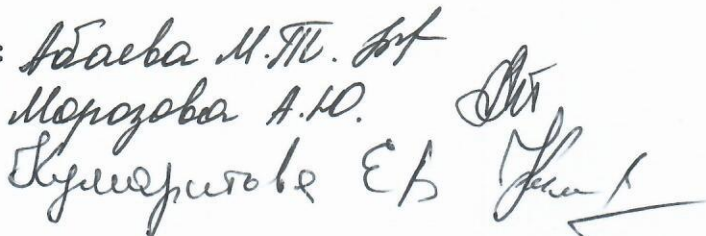 : Абаева М.Т.
Морозова А.Ю.
Кумаритова Е В